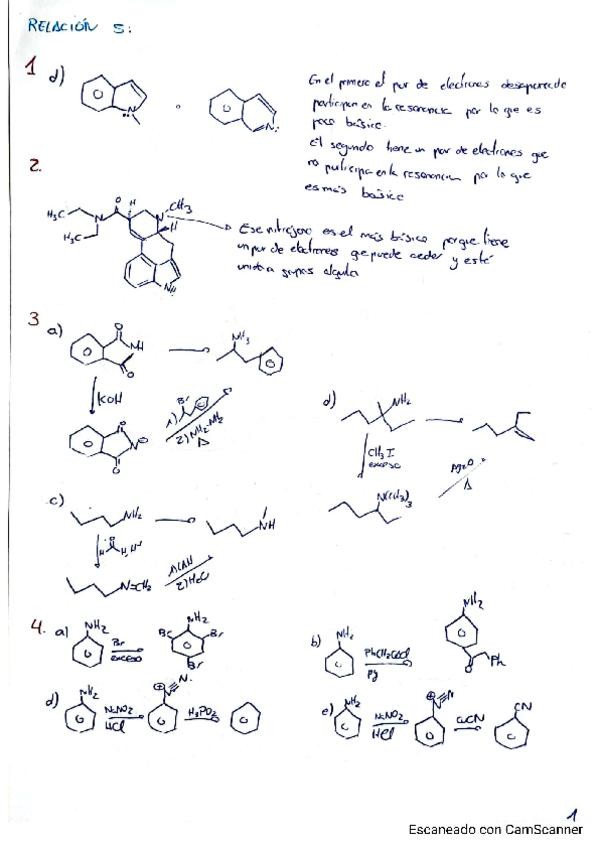 RELACIÓN 5:
1 d)
En el primero el par de electrones desaparecido
participa en la resonancia por lo que es
poco básico.
El segundo tiene un par de electrones que
no participa en la resonancia por lo que
es más básico
2.
H3C N O H N CH3
H3C H
Ese nitrógeno es el más básico porque tiene
un par de electrones que puede ceder y esté
unido a grupos alquilo
3 a)
O NH O
NH2
KOH
Br
1)
2) NH2-NH2
Δ
d)
NH2
CH3I
exceso
Ag2O
Δ
N(CH3)3
c)
NH2 NH
H, H+
N=CH2
1) LAH
2) H2O
4. a) NH2 Br exceso NH2 Br Br Br
b) NH2 PhCH2COCl Py NH2 O Ph
d) NH2 NaNO2 HCl N≡N H3PO2
e) NH2 NaNO2 HCl N≡N CuCN CN
1
Escaneado con CamScanner